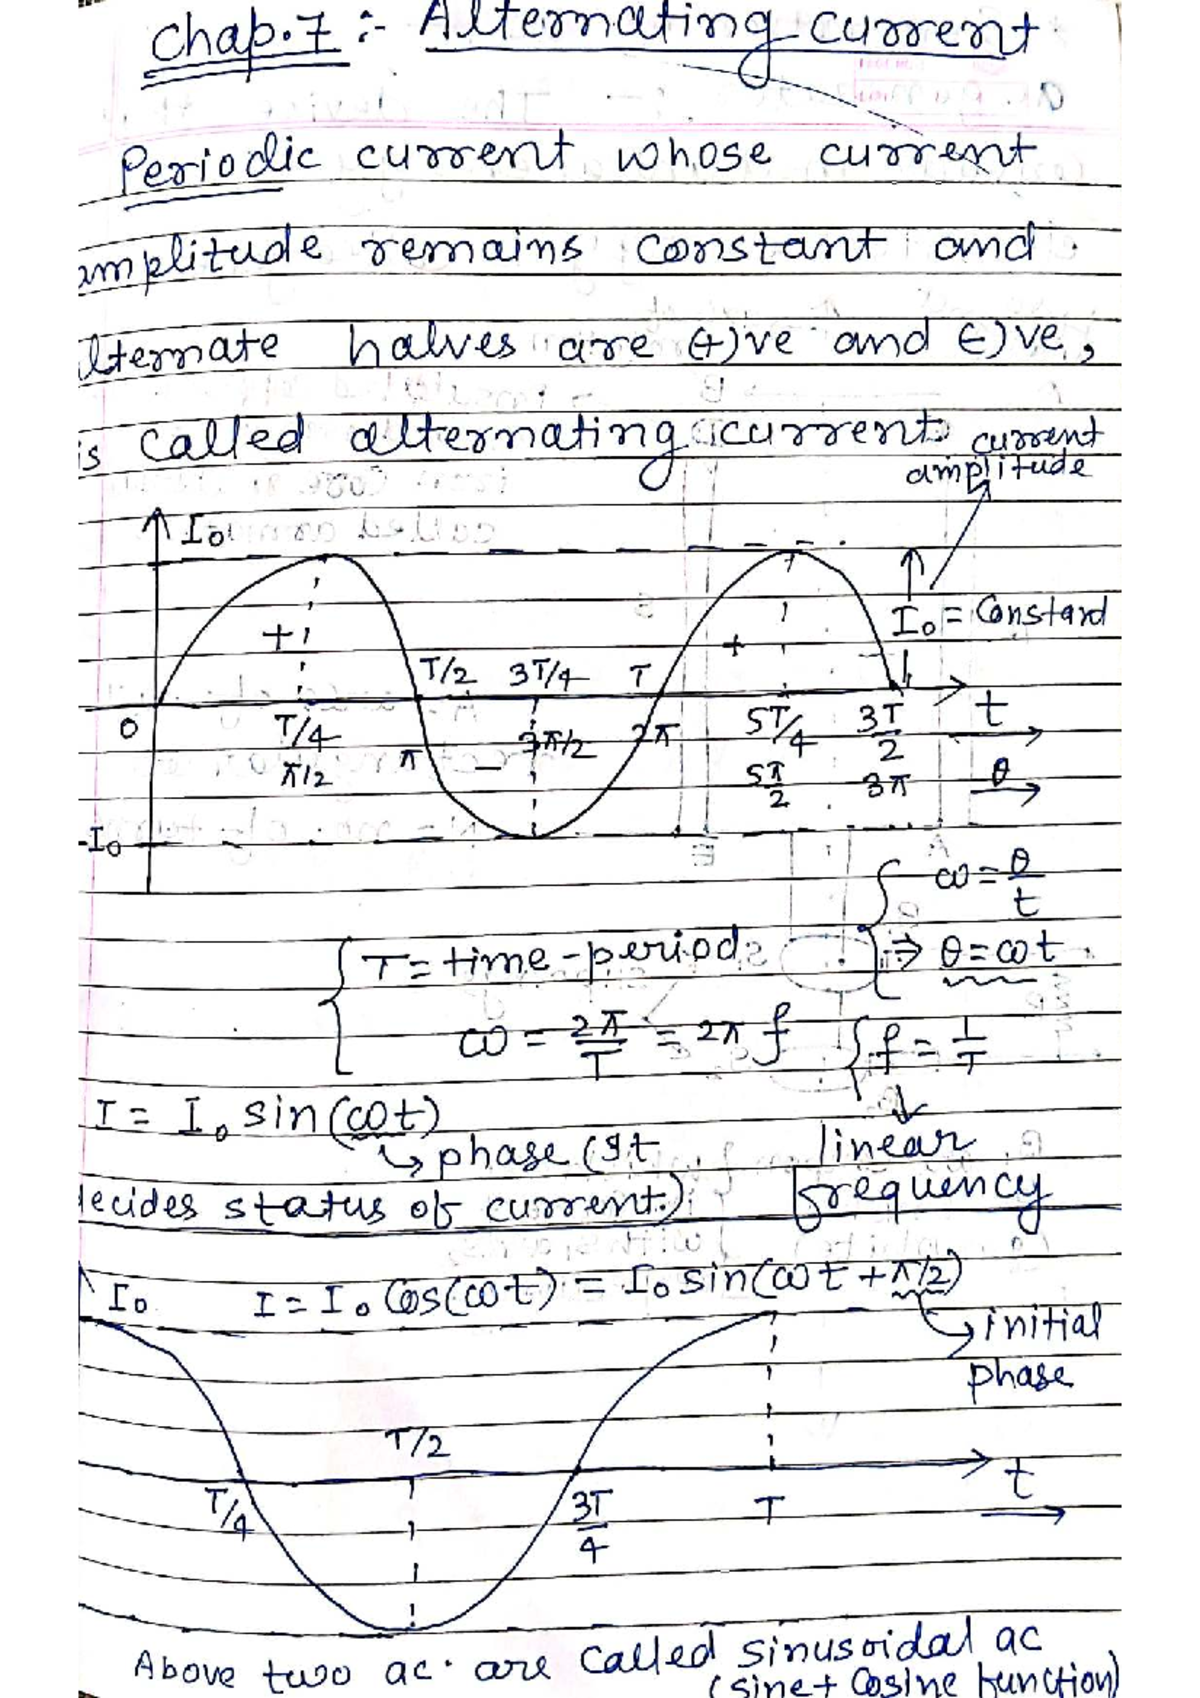 Chap.7 :- Alternating current
Periodic current whose current
amplitude remains constant and
lternate halves are (+)ve and (-)ve,
is called alternating current.
current
amplitude
I₀
+
+
I₀ = Constant
T/2 3T/4 T
0
T/4
5T/4
3T/2
t
π/2
π
−
3π/2
2π
5π/2
3π
θ
-I₀
ω = θ/t
T = time-period
⇒ θ = ωt
ω = 2π/T = 2πf
f = 1/T
I = I₀ sin(ωt)
↳ phase (It
linear
decides status of current.)
frequency
I₀ I = I₀ Cos(ωt) = I₀ sin(ωt + π/2)
↳ initial
phase
T/2
t
T/4
3T/4
T
Above two ac. are called sinusoidal ac
(sine + Cosine function)